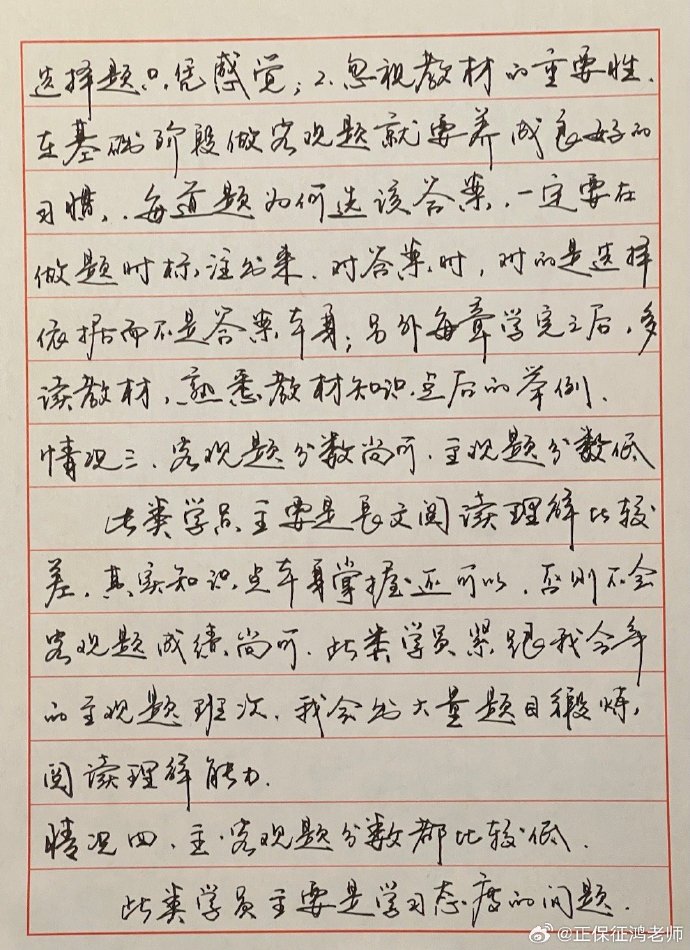 选择题只凭感觉；2.忽视教材的重要性.
在基础阶段做客观题就要养成良好的
习惯，每道题为何选该答案，一定要在
做题时标注出来.对答案时，对的是选择
依据而不是答案本身；另外每章学完之后，多
读教材，熟悉教材知识点后的举例.
情况三、客观题分数尚可.主观题分数低
此类学员主要是长文阅读理解比较
差，其实知识点本身掌握还可以，否则不会
客观题成绩尚可.此类学员紧跟我今年
的主观题班次，我会出大量题目锻炼，
阅读理解能力.
情况四、主、客观题分数都比较低.
此类学员主要是学习态度的问题.
@正保征鸿老师